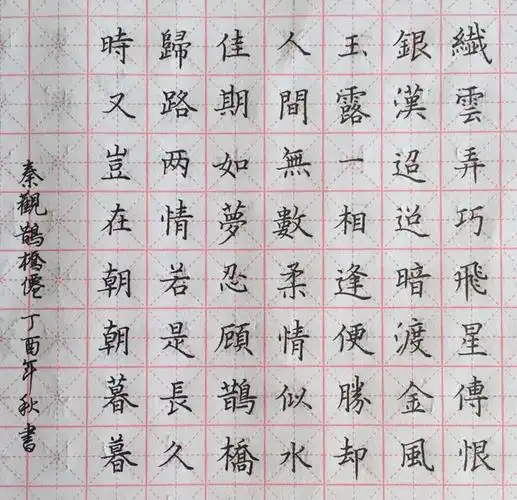 纖雲弄巧飛星傳恨
銀漢迢迢暗渡金風
玉露一相逢便勝却
人間無數柔情似水
佳期如夢忍顧鵲橋
歸路两情若是長久
時又豈在朝朝暮暮
秦觀鵲橋僊丁酉年秋書